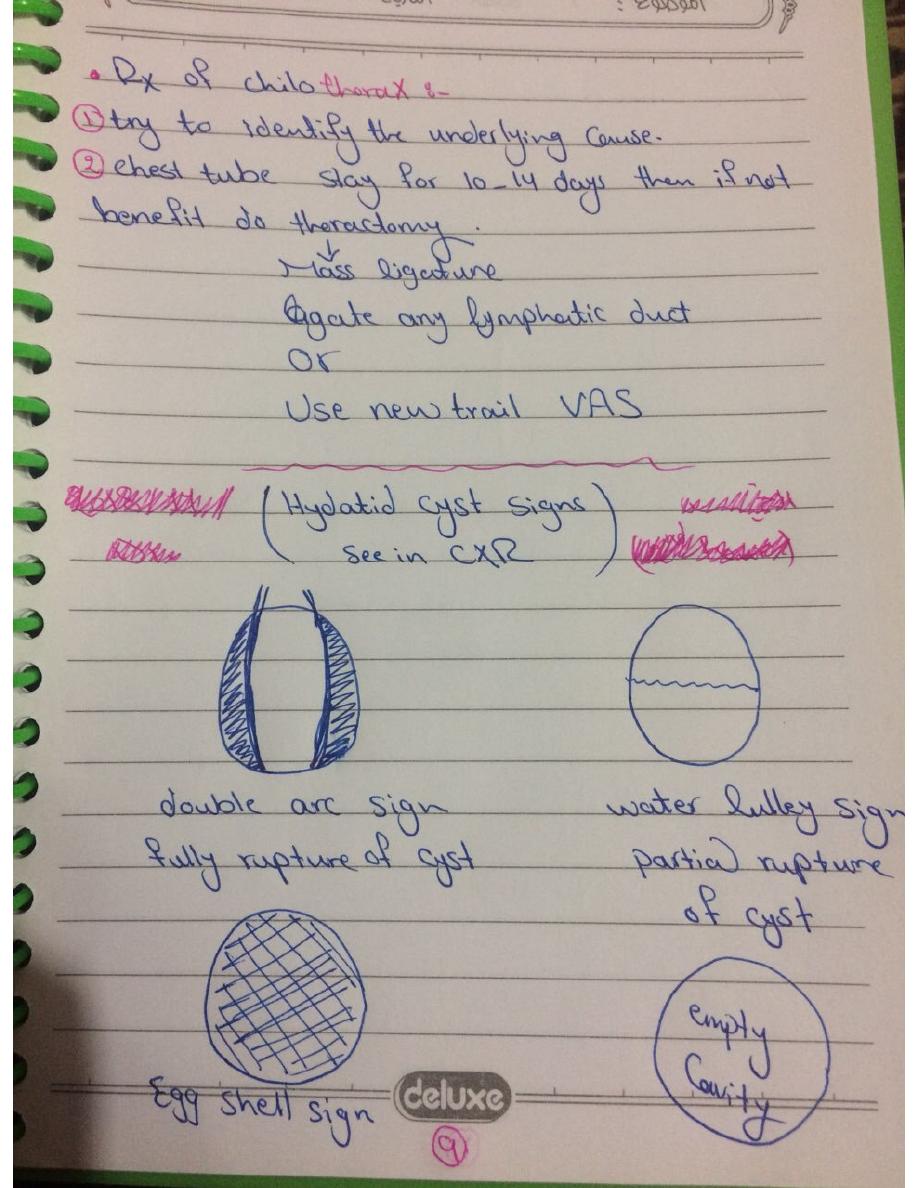 الموضوع :
• Rx of chilothorax :-
① try to identify the underlying Cause.
② chest tube stay for 10-14 days then if not
benefit do thoractomy.
↓
Mass ligature
ligate any lymphatic duct
Or
Use new trail VAS
(Hydatid cyst signs
see in CXR)
double arc sign
fully rupture of cyst
water lulley sign
partial rupture
of cyst
Egg shell sign
empty
Cavity
deluxe
9